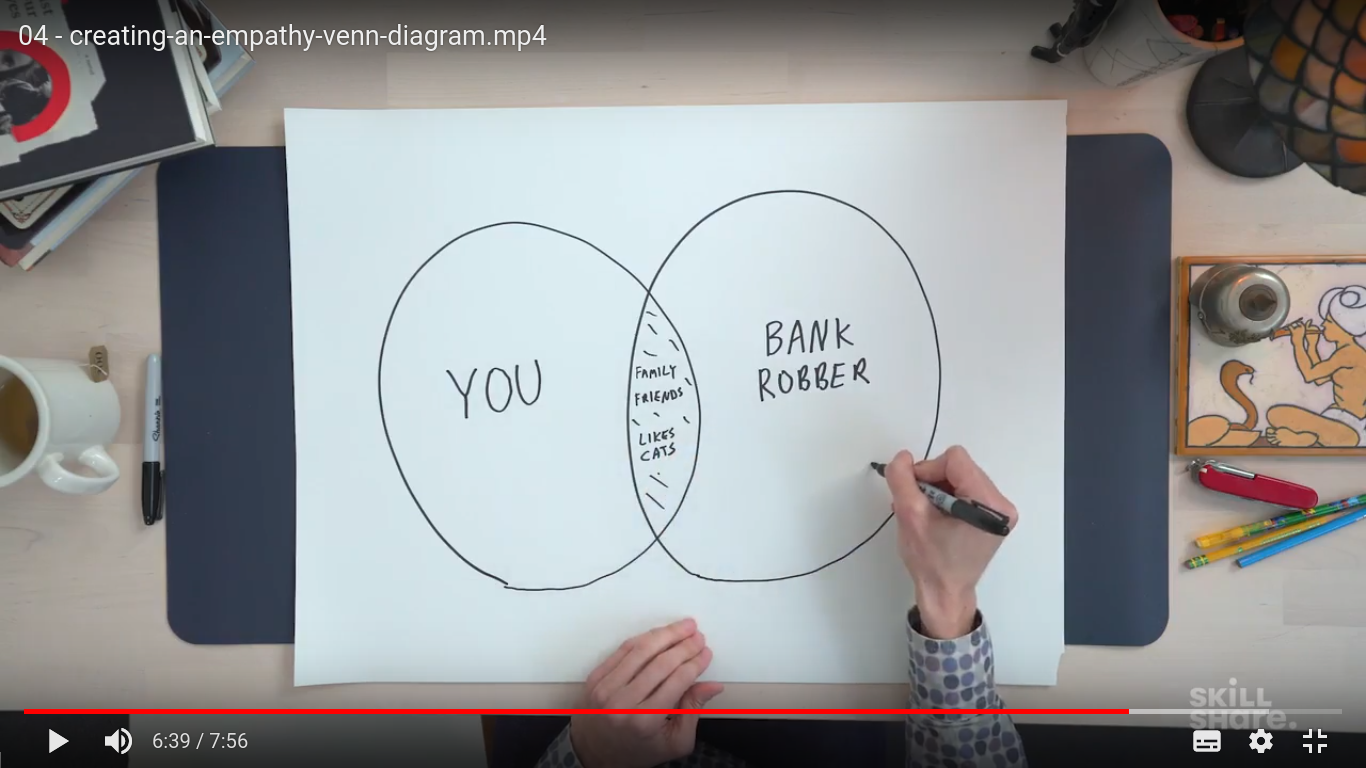 04 - creating-an-empathy-venn-diagram.mp4
YOU
FAMILY
FRIENDS
LIKES
CATS
BANK
ROBBER
Sharpie
SKiLL
SHare.
6:39 / 7:56